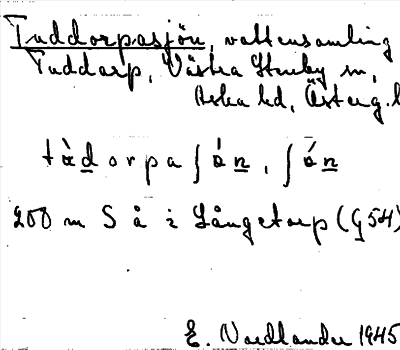 Tuddorpasjön, vattensamling
Tuddarp, Västra Stenby sn,
Aska hd, Österg.l
tu̇̀dorpaʃȯ́n, ʃȯ́n
200 m S å i Långetorp (G54)
E. Nordlander 1945